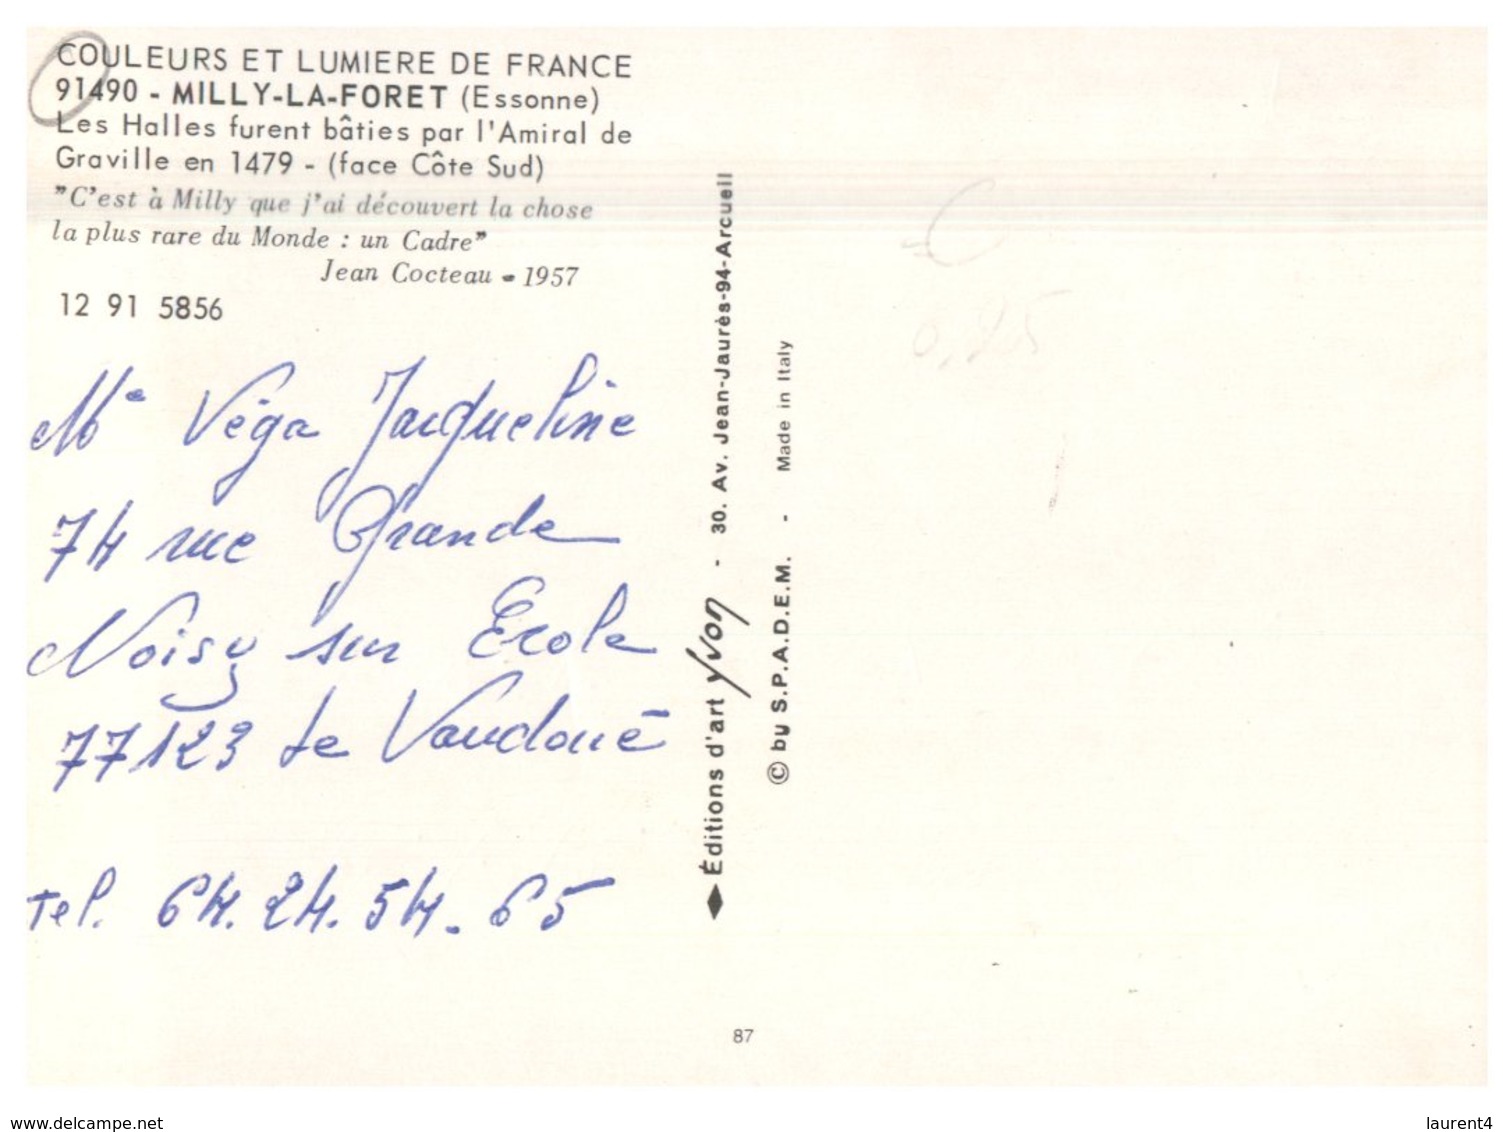 COULEURS ET LUMIERE DE FRANCE
91490 - MILLY-LA-FORET (Essonne)
Les Halles furent bâties par l'Amiral de
Graville en 1479 - (face Côte Sud)
"C'est à Milly que j'ai découvert la chose
la plus rare du Monde : un Cadre"
Jean Cocteau - 1957
12 91 5856
Me Véga Jacqueline
74 rue Grande
Noisy sur Ecole
77123 Le Vaudoué
Tel. 64.24.54.65
◆ Éditions d'art Yvon - 30. Av. Jean-Jaurès-94-Arcueil
© by S.P.A.D.E.M. - Made in Italy
€
0,25
87
www.delcampe.net
laurent4